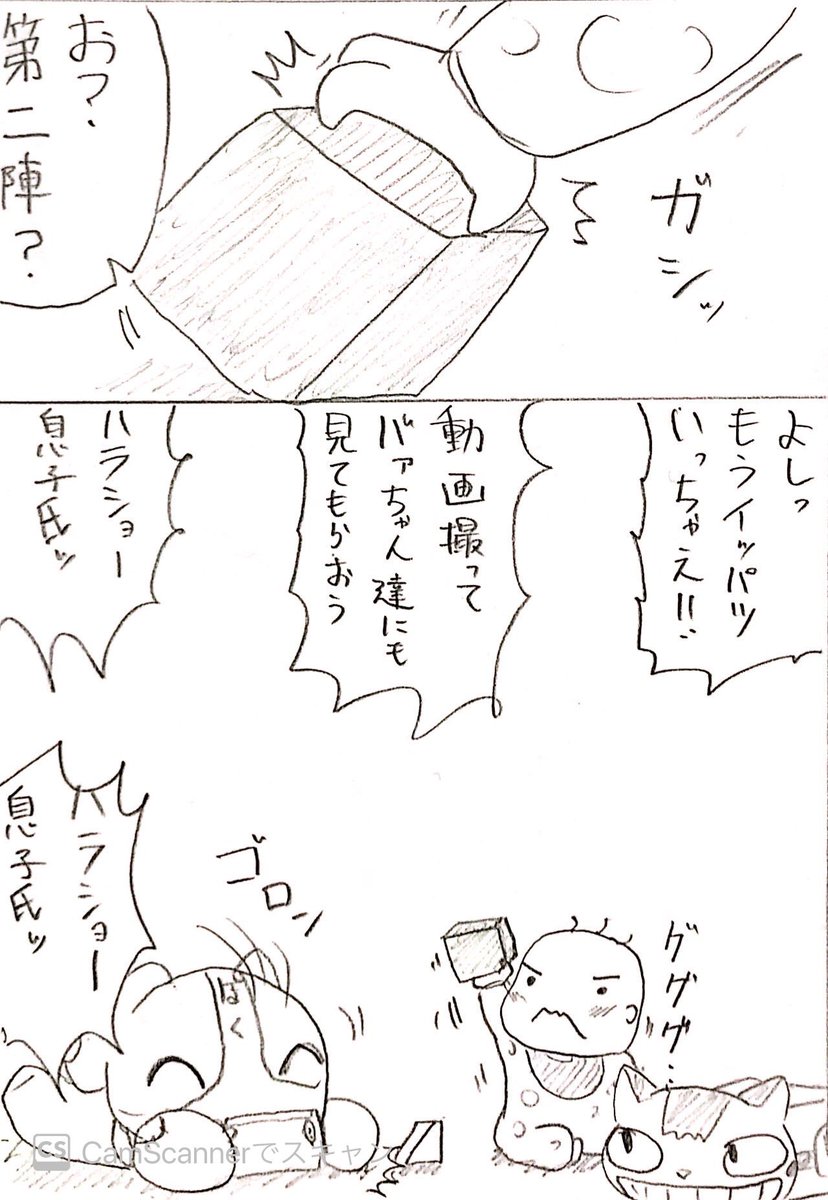 ガシッ
お?
第二陣?
よしっ
もうイッパツ
いっちゃえ!!
動画撮って
バァちゃん達にも
見てもらおう
ハラショー
息子氏ッ
グググ…
ゴロンッ
ハラショー
息子氏ッ
ぱく
CS CamScannerでスキャン